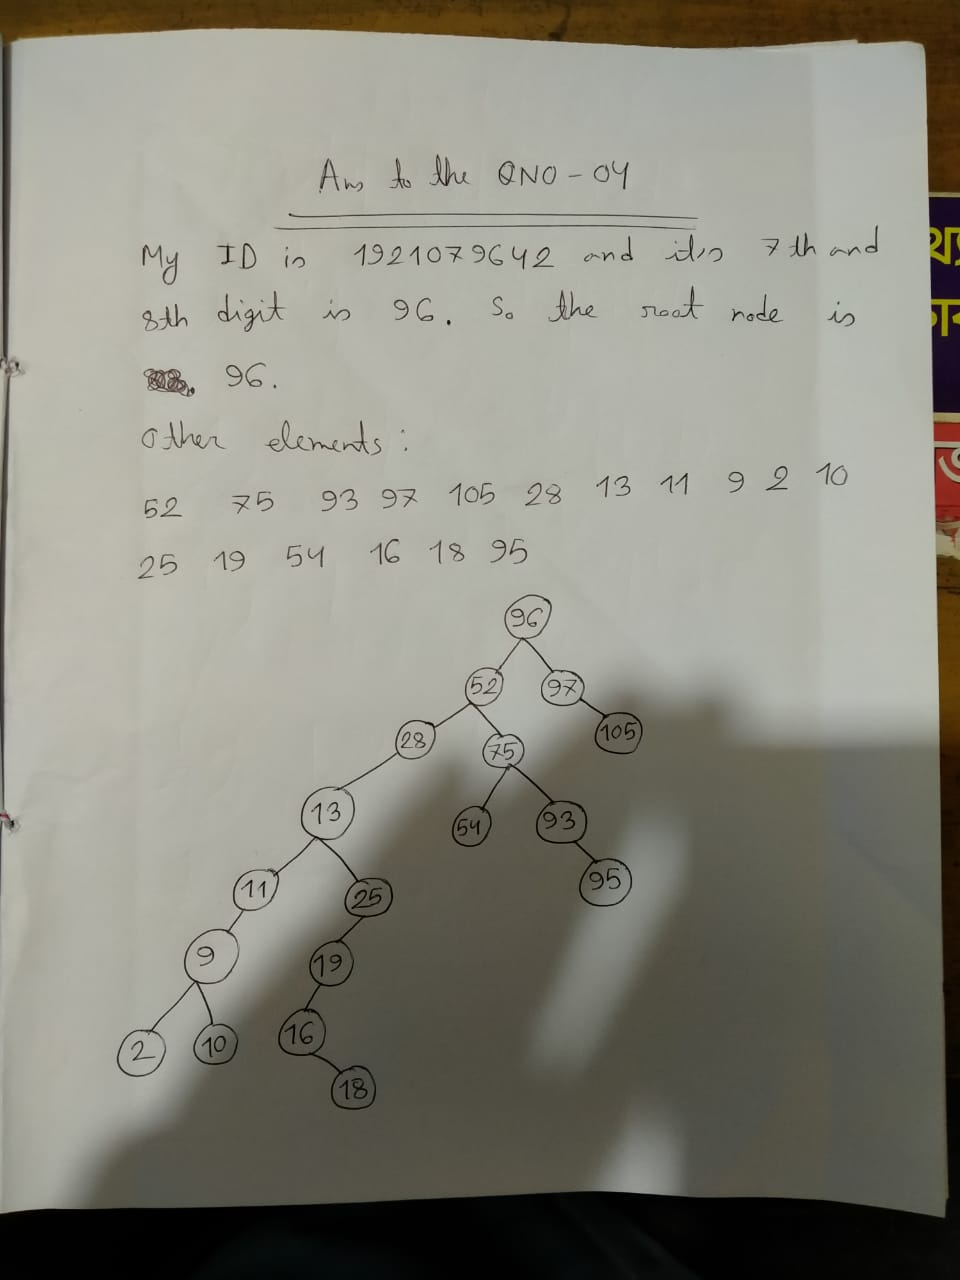 Ans to the QNO-04
My ID is 1921079642 and it's 7th and
8th digit is 96. So the root node is
96.
Other elements:
52 75 93 97 105 28 13 11 9 2 10
25 19 54 16 18 95
96
52 97
28 75 105
13 54 93
11 25 95
9 19
2 10 16
18